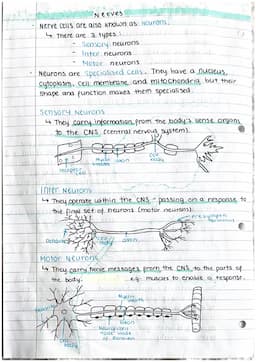 Nerves
- Nerve cells are also known as neurons.
↳ There are 3 types:
- Sensory neurons
- Inter neurons
- Motor neurons
- Neurons are specialised cells. They have a nucleus,
cytoplasm, cell membrane, and mitochondria but their
shape and function makes them specialised.
Sensory Neurons
↳ They carry information from the body's sense organs
to the CNS (central nervous system).
Receptor
Myelin
axon
Cell body
Inter Neurons
↳ They operate within the CNS - passing on a response to
the final set of neurons (motor neurons).
Dendrites
axon
Motor Neurons
↳ They carry nerve messages from the CNS to the parts of
the body. e.g: muscles to enable a response.
Myelin sheath
axon
cell body
of Ranvier